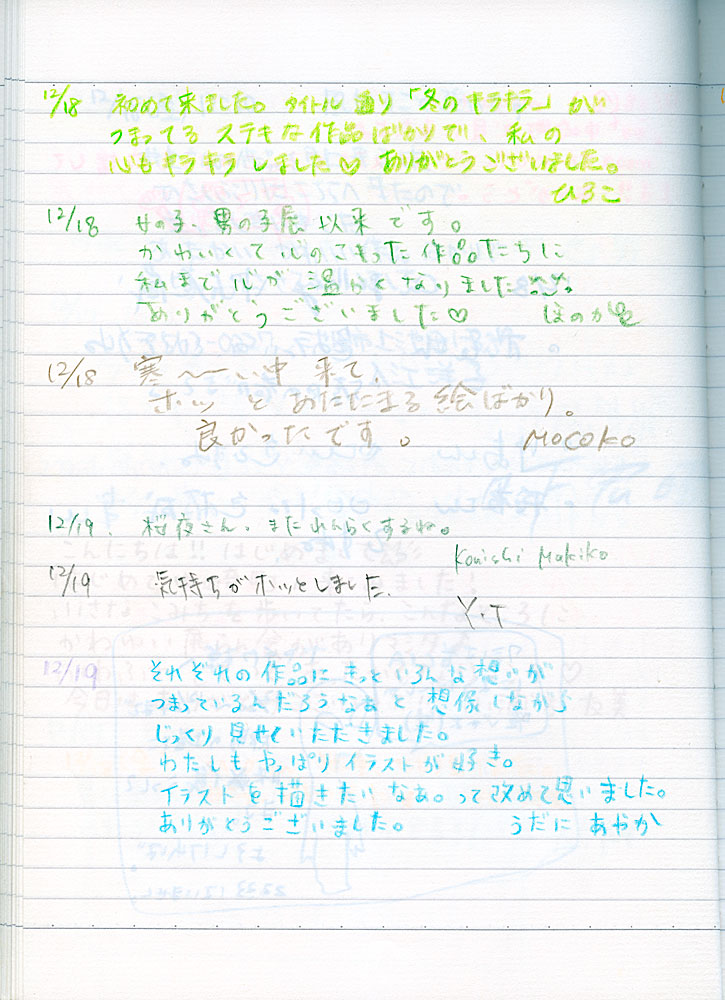 12/18 初めて来ました。タイトル通り「冬のキラキラ」が
つまってるステキな作品ばかりで、私の
心もキラキラしました♡ ありがとうございました。
ひろこ
12/18 女の子、男の子展以来です。
かわいくて心のこもった作品たちに
私まで心が温かくなりました
ありがとうございました♡ ほのか
12/18 寒〜い中 来て、
ホッ とあたたまる絵ばかり。
良かったです。 MOCOKO
12/19. 桜夜さん、またれんらくするね。
Konishi Makiko
12/19 気持ちがホッとしました.
Y.T
12/19 それぞれの作品にきっといろんな想いが
つまっているんだろうなぁと想像しながら
じっくり見せていただきました。
わたしもやっぱりイラストが好き。
イラストを描きたいなぁ。って改めて思いました。
ありがとうございました。 うだに あやか